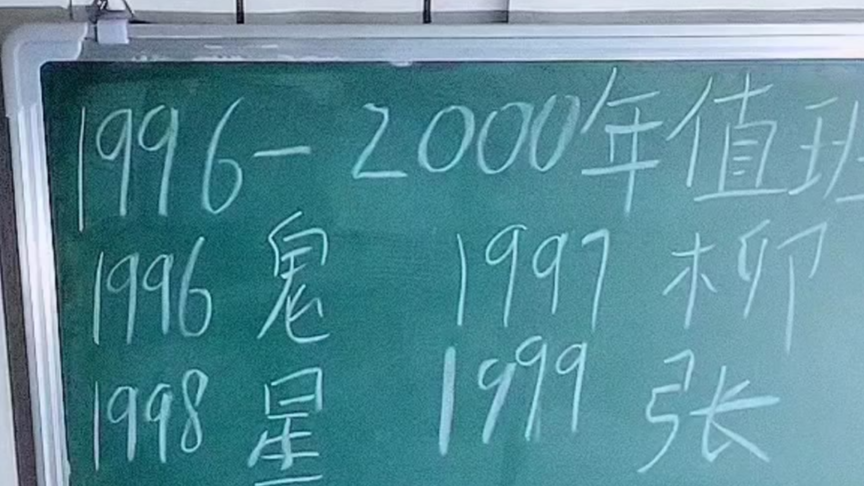 1996-2000年值班
1996 鬼 1997 柳
1998 星 1999 张